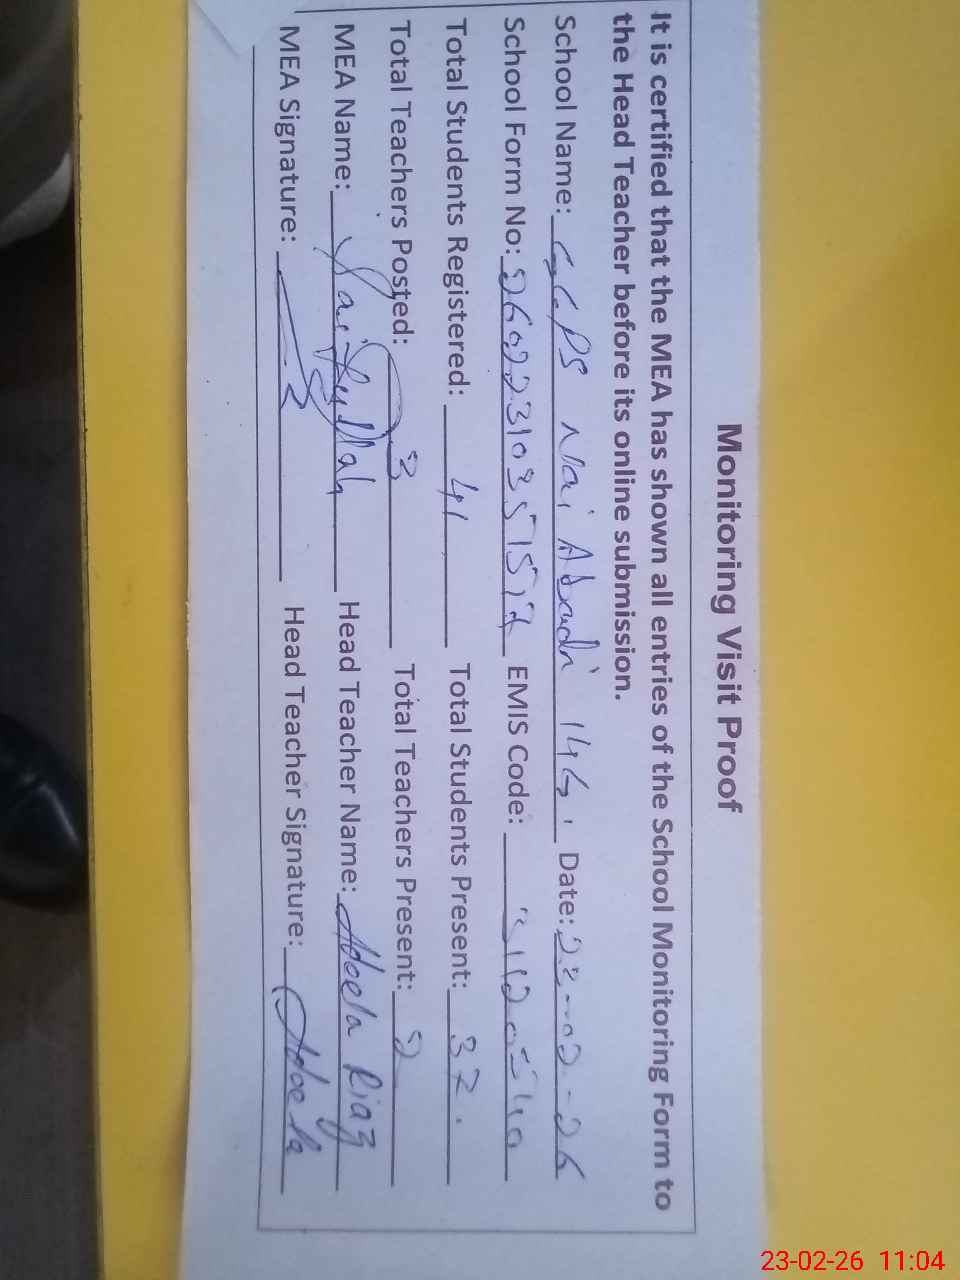 Monitoring Visit Proof
It is certified that the MEA has shown all entries of the School Monitoring Form to
the Head Teacher before its online submission.
School Name: GGPS Nai Abadi 14G. Date: 23-02-26
School Form No: EMIS Code:
Total Students Registered: 41 Total Students Present: 37.
Total Teachers Posted: 3 Total Teachers Present: 2
MEA Name: Head Teacher Name: Adeela Riaz
MEA Signature: Head Teacher Signature: Adeela
23-02-26 11:04